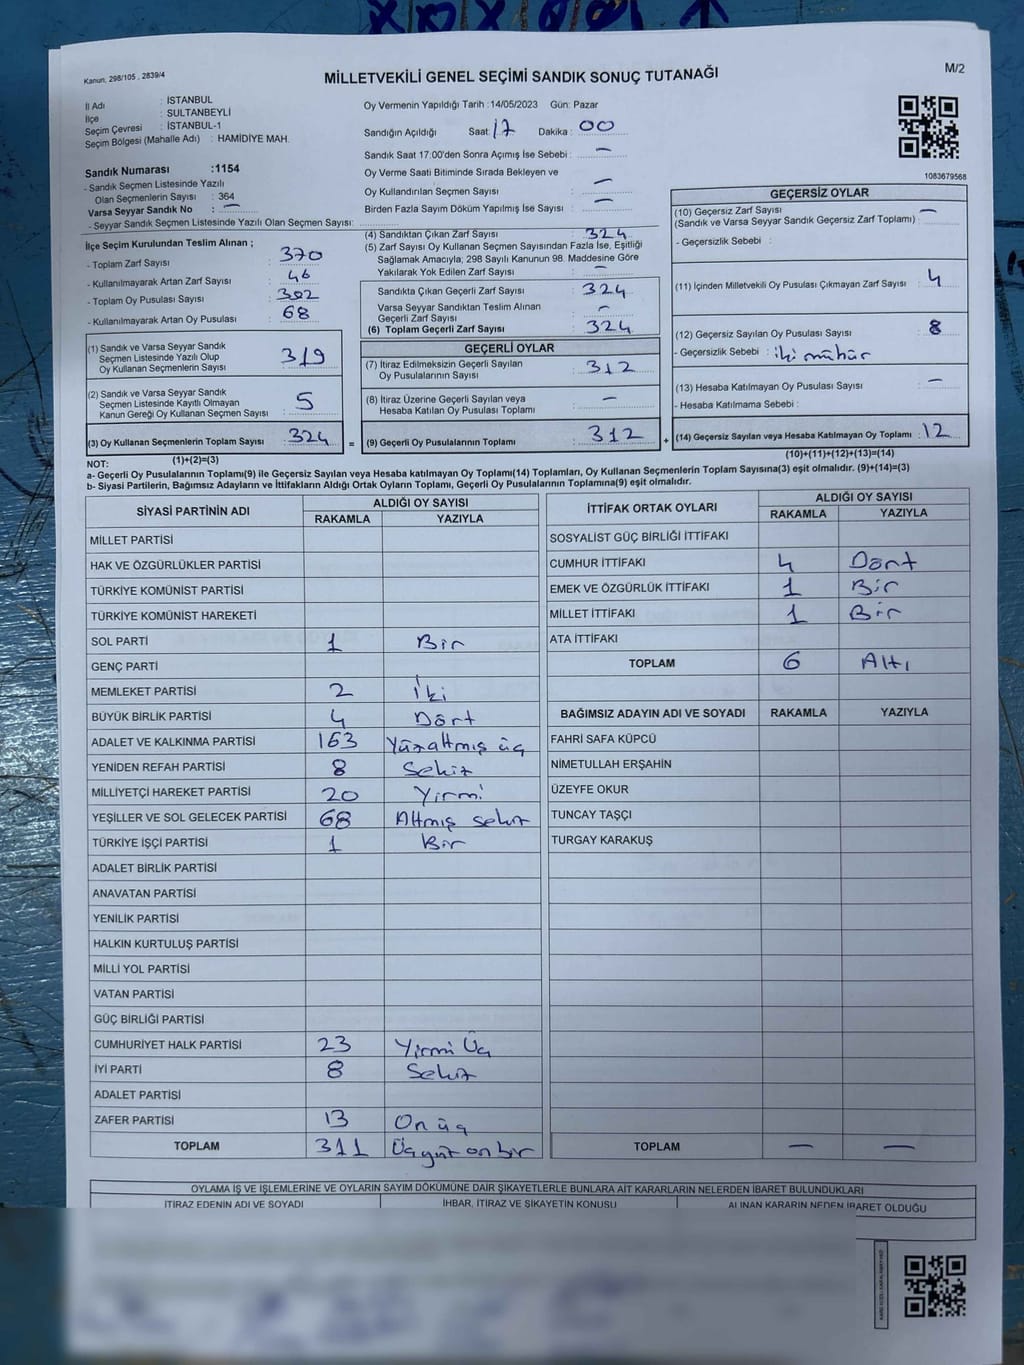 Kanun, 298/105 , 2839/4
MİLLETVEKİLİ GENEL SEÇİMİ SANDIK SONUÇ TUTANAĞI
M/2
İl Adı : İSTANBUL
İlçe : SULTANBEYLİ
Seçim Çevresi : İSTANBUL-1
Seçim Bölgesi (Mahalle Adı) : HAMİDİYE MAH.
Oy Vermenin Yapıldığı Tarih :14/05/2023 Gün: Pazar
Sandığın Açıldığı Saat: 17 Dakika : 00
Sandık Saat 17:00'den Sonra Açımış İse Sebebi : —
Oy Verme Saati Bitiminde Sırada Bekleyen ve
Oy Kullandırılan Seçmen Sayısı : —
Birden Fazla Sayım Döküm Yapılmış İse Sayısı : —
1083679568
Sandık Numarası :1154
- Sandık Seçmen Listesinde Yazılı
Olan Seçmenlerin Sayısı : 364
Varsa Seyyar Sandık No : —
- Seyyar Sandık Seçmen Listesinde Yazılı Olan Seçmen Sayısı:
İlçe Seçim Kurulundan Teslim Alınan ;
- Toplam Zarf Sayısı : 370
- Kullanılmayarak Artan Zarf Sayısı : 46
- Toplam Oy Pusulası Sayısı :
- Kullanılmayarak Artan Oy Pusulası : 68
(1) Sandık ve Varsa Seyyar Sandık
Seçmen Listesinde Yazılı Olup
Oy Kullanan Seçmenlerin Sayısı : 319
(2) Sandık ve Varsa Seyyar Sandık
Seçmen Listesinde Kayıtlı Olmayan
Kanun Gereği Oy Kullanan Seçmen Sayısı : 5
(3) Oy Kullanan Seçmenlerin Toplam Sayısı : 324
(1)+(2)=(3)
(4) Sandıktan Çıkan Zarf Sayısı : 324
(5) Zarf Sayısı Oy Kullanan Seçmen Sayısından Fazla İse, Eşitliği
Sağlamak Amacıyla, 298 Sayılı Kanunun 98. Maddesine Göre
Yakılarak Yok Edilen Zarf Sayısı : —
Sandıkta Çıkan Geçerli Zarf Sayısı : 324
Varsa Seyyar Sandıktan Teslim Alınan
Geçerli Zarf Sayısı : —
(6) Toplam Geçerli Zarf Sayısı : 324
GEÇERLİ OYLAR
(7) İtiraz Edilmeksizin Geçerli Sayılan
Oy Pusulalarının Sayısı : 312
(8) İtiraz Üzerine Geçerli Sayılan veya
Hesaba Katılan Oy Pusulası Toplamı : —
= (9) Geçerli Oy Pusulalarının Toplamı : 312
GEÇERSİZ OYLAR
(10) Geçersiz Zarf Sayısı : —
(Sandık ve Varsa Seyyar Sandık Geçersiz Zarf Toplamı)
- Geçersizlik Sebebi :
(11) İçinden Milletvekili Oy Pusulası Çıkmayan Zarf Sayısı : 4
(12) Geçersiz Sayılan Oy Pusulası Sayısı : 8
- Geçersizlik Sebebi : iki mühür
(13) Hesaba Katılmayan Oy Pusulası Sayısı : —
- Hesaba Katılmama Sebebi :
+ (14) Geçersiz Sayılan veya Hesaba Katılmayan Oy Toplamı : 12
(10)+(11)+(12)+(13)=(14)
NOT:
a- Geçerli Oy Pusulalarının Toplamı(9) ile Geçersiz Sayılan veya Hesaba katılmayan Oy Toplamı(14) Toplamları, Oy Kullanan Seçmenlerin Toplam Sayısına(3) eşit olmalıdır. (9)+(14)=(3)
b- Siyasi Partilerin, Bağımsız Adayların ve İttifakların Aldığı Ortak Oyların Toplamı, Geçerli Oy Pusulalarının Toplamına(9) eşit olmalıdır.
SİYASİ PARTİNİN ADI ALDIĞI OY SAYISI
RAKAMLA YAZIYLA
MİLLET PARTİSİ
HAK VE ÖZGÜRLÜKLER PARTİSİ
TÜRKİYE KOMÜNİST PARTİSİ
TÜRKİYE KOMÜNİST HAREKETİ
SOL PARTİ 1 Bir
GENÇ PARTİ
MEMLEKET PARTİSİ 2 İki
BÜYÜK BİRLİK PARTİSİ 4 Dört
ADALET VE KALKINMA PARTİSİ 163 Yüzaltmış üç
YENİDEN REFAH PARTİSİ 8 Sekiz
MİLLİYETÇİ HAREKET PARTİSİ 20 Yirmi
YEŞİLLER VE SOL GELECEK PARTİSİ 68 Altmış sekiz
TÜRKİYE İŞÇİ PARTİSİ 1 Bir
ADALET BİRLİK PARTİSİ
ANAVATAN PARTİSİ
YENİLİK PARTİSİ
HALKIN KURTULUŞ PARTİSİ
MİLLİ YOL PARTİSİ
VATAN PARTİSİ
GÜÇ BİRLİĞİ PARTİSİ
CUMHURİYET HALK PARTİSİ 23 Yirmi Üç
İYİ PARTİ 8 Sekiz
ADALET PARTİSİ
ZAFER PARTİSİ 13 On üç
TOPLAM 311 Üçyüz on bir
İTTİFAK ORTAK OYLARI ALDIĞI OY SAYISI
RAKAMLA YAZIYLA
SOSYALİST GÜÇ BİRLİĞİ İTTİFAKI
CUMHUR İTTİFAKI 4 Dört
EMEK VE ÖZGÜRLÜK İTTİFAKI 1 Bir
MİLLET İTTİFAKI 1 Bir
ATA İTTİFAKI
TOPLAM 6 Altı
BAĞIMSIZ ADAYIN ADI VE SOYADI RAKAMLA YAZIYLA
FAHRİ SAFA KÜPCÜ
NİMETULLAH ERŞAHİN
ÜZEYFE OKUR
TUNCAY TAŞÇI
TURGAY KARAKUŞ
TOPLAM — —
OYLAMA İŞ VE İŞLEMLERİNE VE OYLARIN SAYIM DÖKÜMÜNE DAİR ŞİKAYETLERLE BUNLARA AİT KARARLARIN NELERDEN İBARET BULUNDUKLARI
İTİRAZ EDENİN ADI VE SOYADI İHBAR, İTİRAZ VE ŞİKAYETİN KONUSU ALINAN KARARIN NEDEN İBARET OLDUĞU